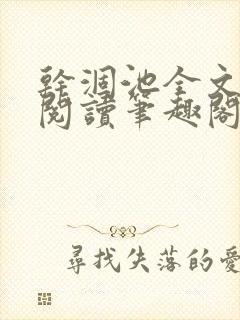 幹涸池全文
閱讀筆趣閣
尋找失落的愛